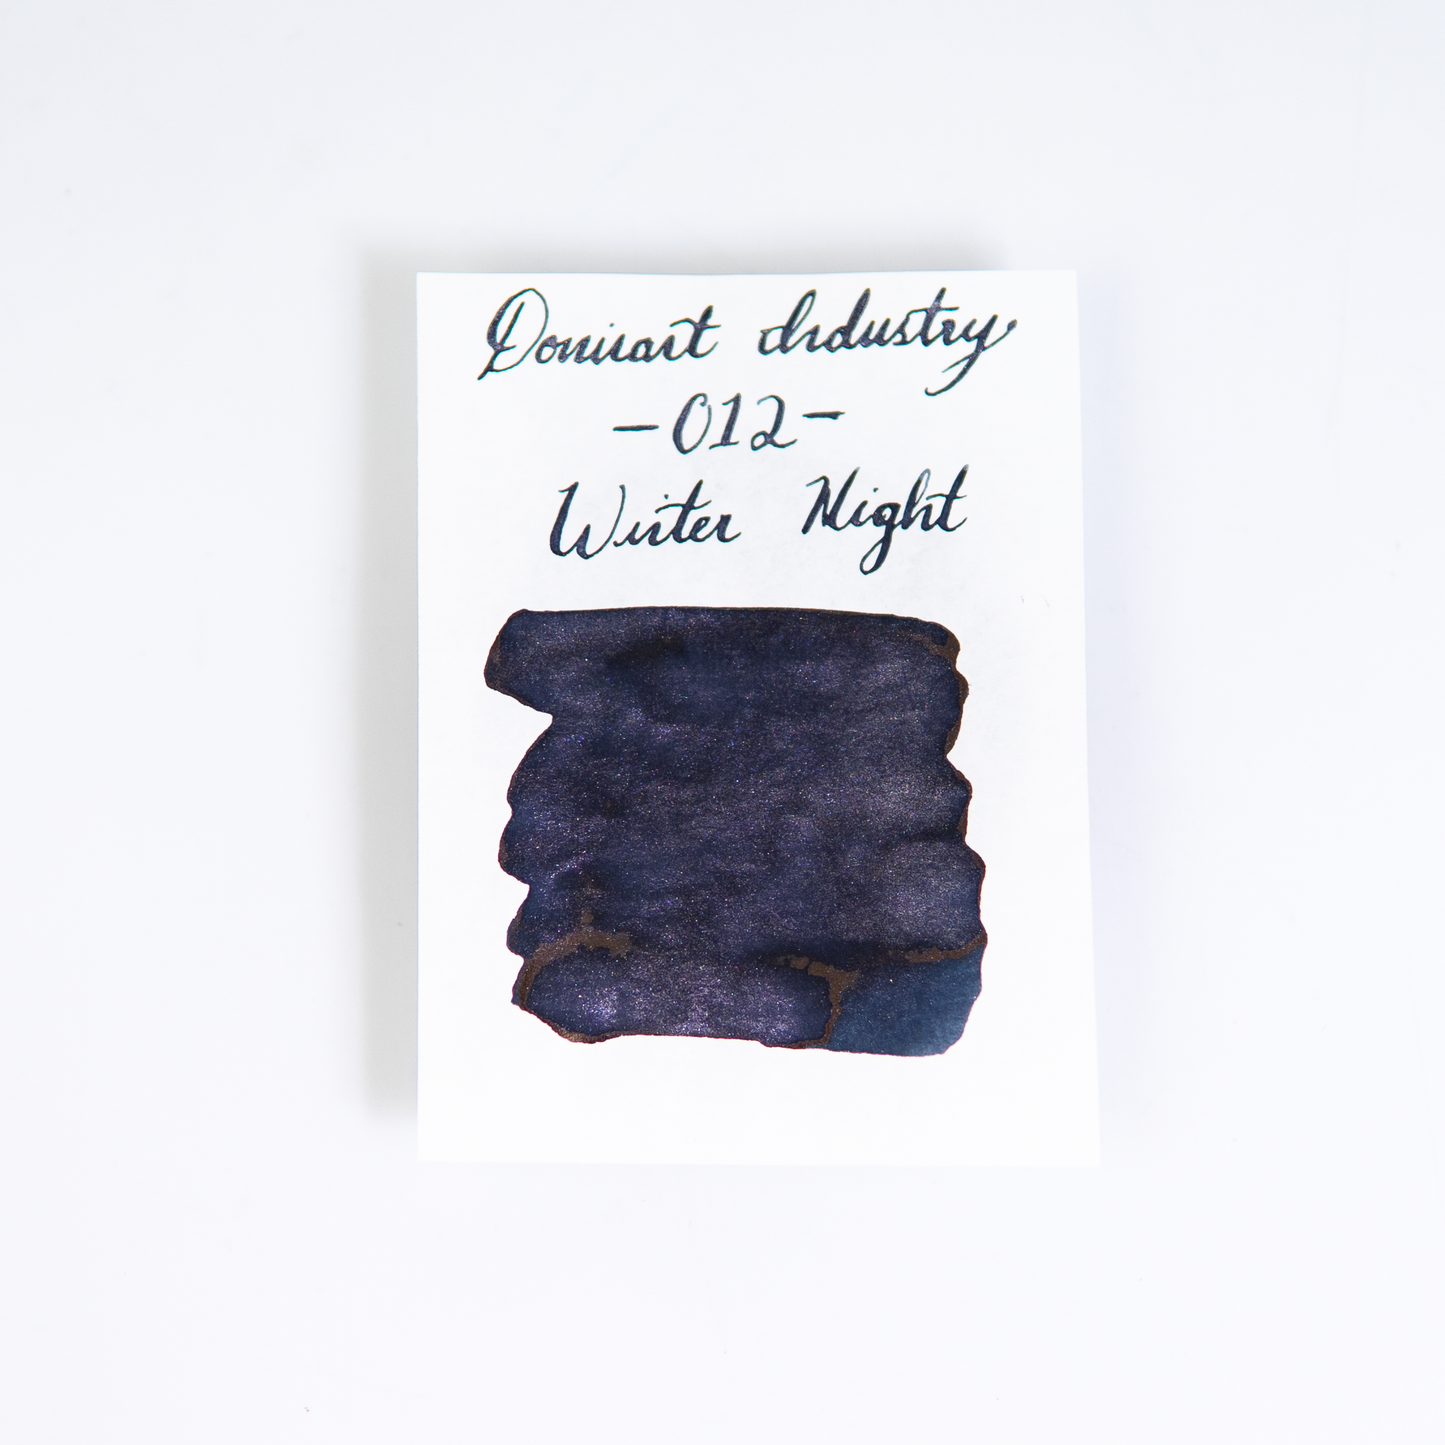 Dominant Industry
-012-
Winter Night